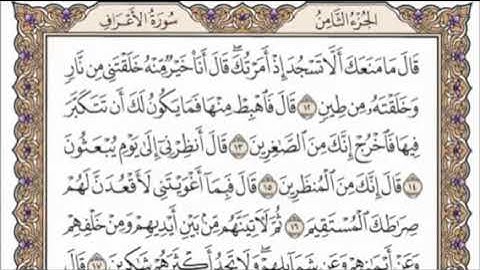 الجُزْءُ الثَّامِنُ
سُورَةُ الأَعْرَافِ
قَالَ مَا مَنَعَكَ أَلَّا تَسْجُدَ إِذْ أَمَرْتُكَ ۖ قَالَ أَنَا۠ خَيْرٌ مِّنْهُ خَلَقْتَنِي مِن نَّارٍ
وَخَلَقْتَهُۥ مِن طِينٍ ١٢ قَالَ فَٱهْبِطْ مِنْهَا فَمَا يَكُونُ لَكَ أَن تَتَكَبَّرَ
فِيهَا فَٱخْرُجْ إِنَّكَ مِنَ ٱلصَّٰغِرِينَ ١٣ قَالَ أَنظِرْنِيٓ إِلَىٰ يَوْمِ يُبْعَثُونَ
١٤ قَالَ إِنَّكَ مِنَ ٱلْمُنظَرِينَ ١٥ قَالَ فَبِمَآ أَغْوَيْتَنِي لَأَقْعُدَنَّ لَهُمْ
صِرَٰطَكَ ٱلْمُسْتَقِيمَ ١٦ ثُمَّ لَأٓتِيَنَّهُم مِّنۢ بَيْنِ أَيْدِيهِمْ وَمِنْ خَلْفِهِمْ
وَعَنْ أَيْمَٰنِهِمْ وَعَن شَمَآئِلِهِمْ ۖ وَلَا تَجِدُ أَكْثَرَهُمْ شَٰكِرِينَ ١٧ قَالَ